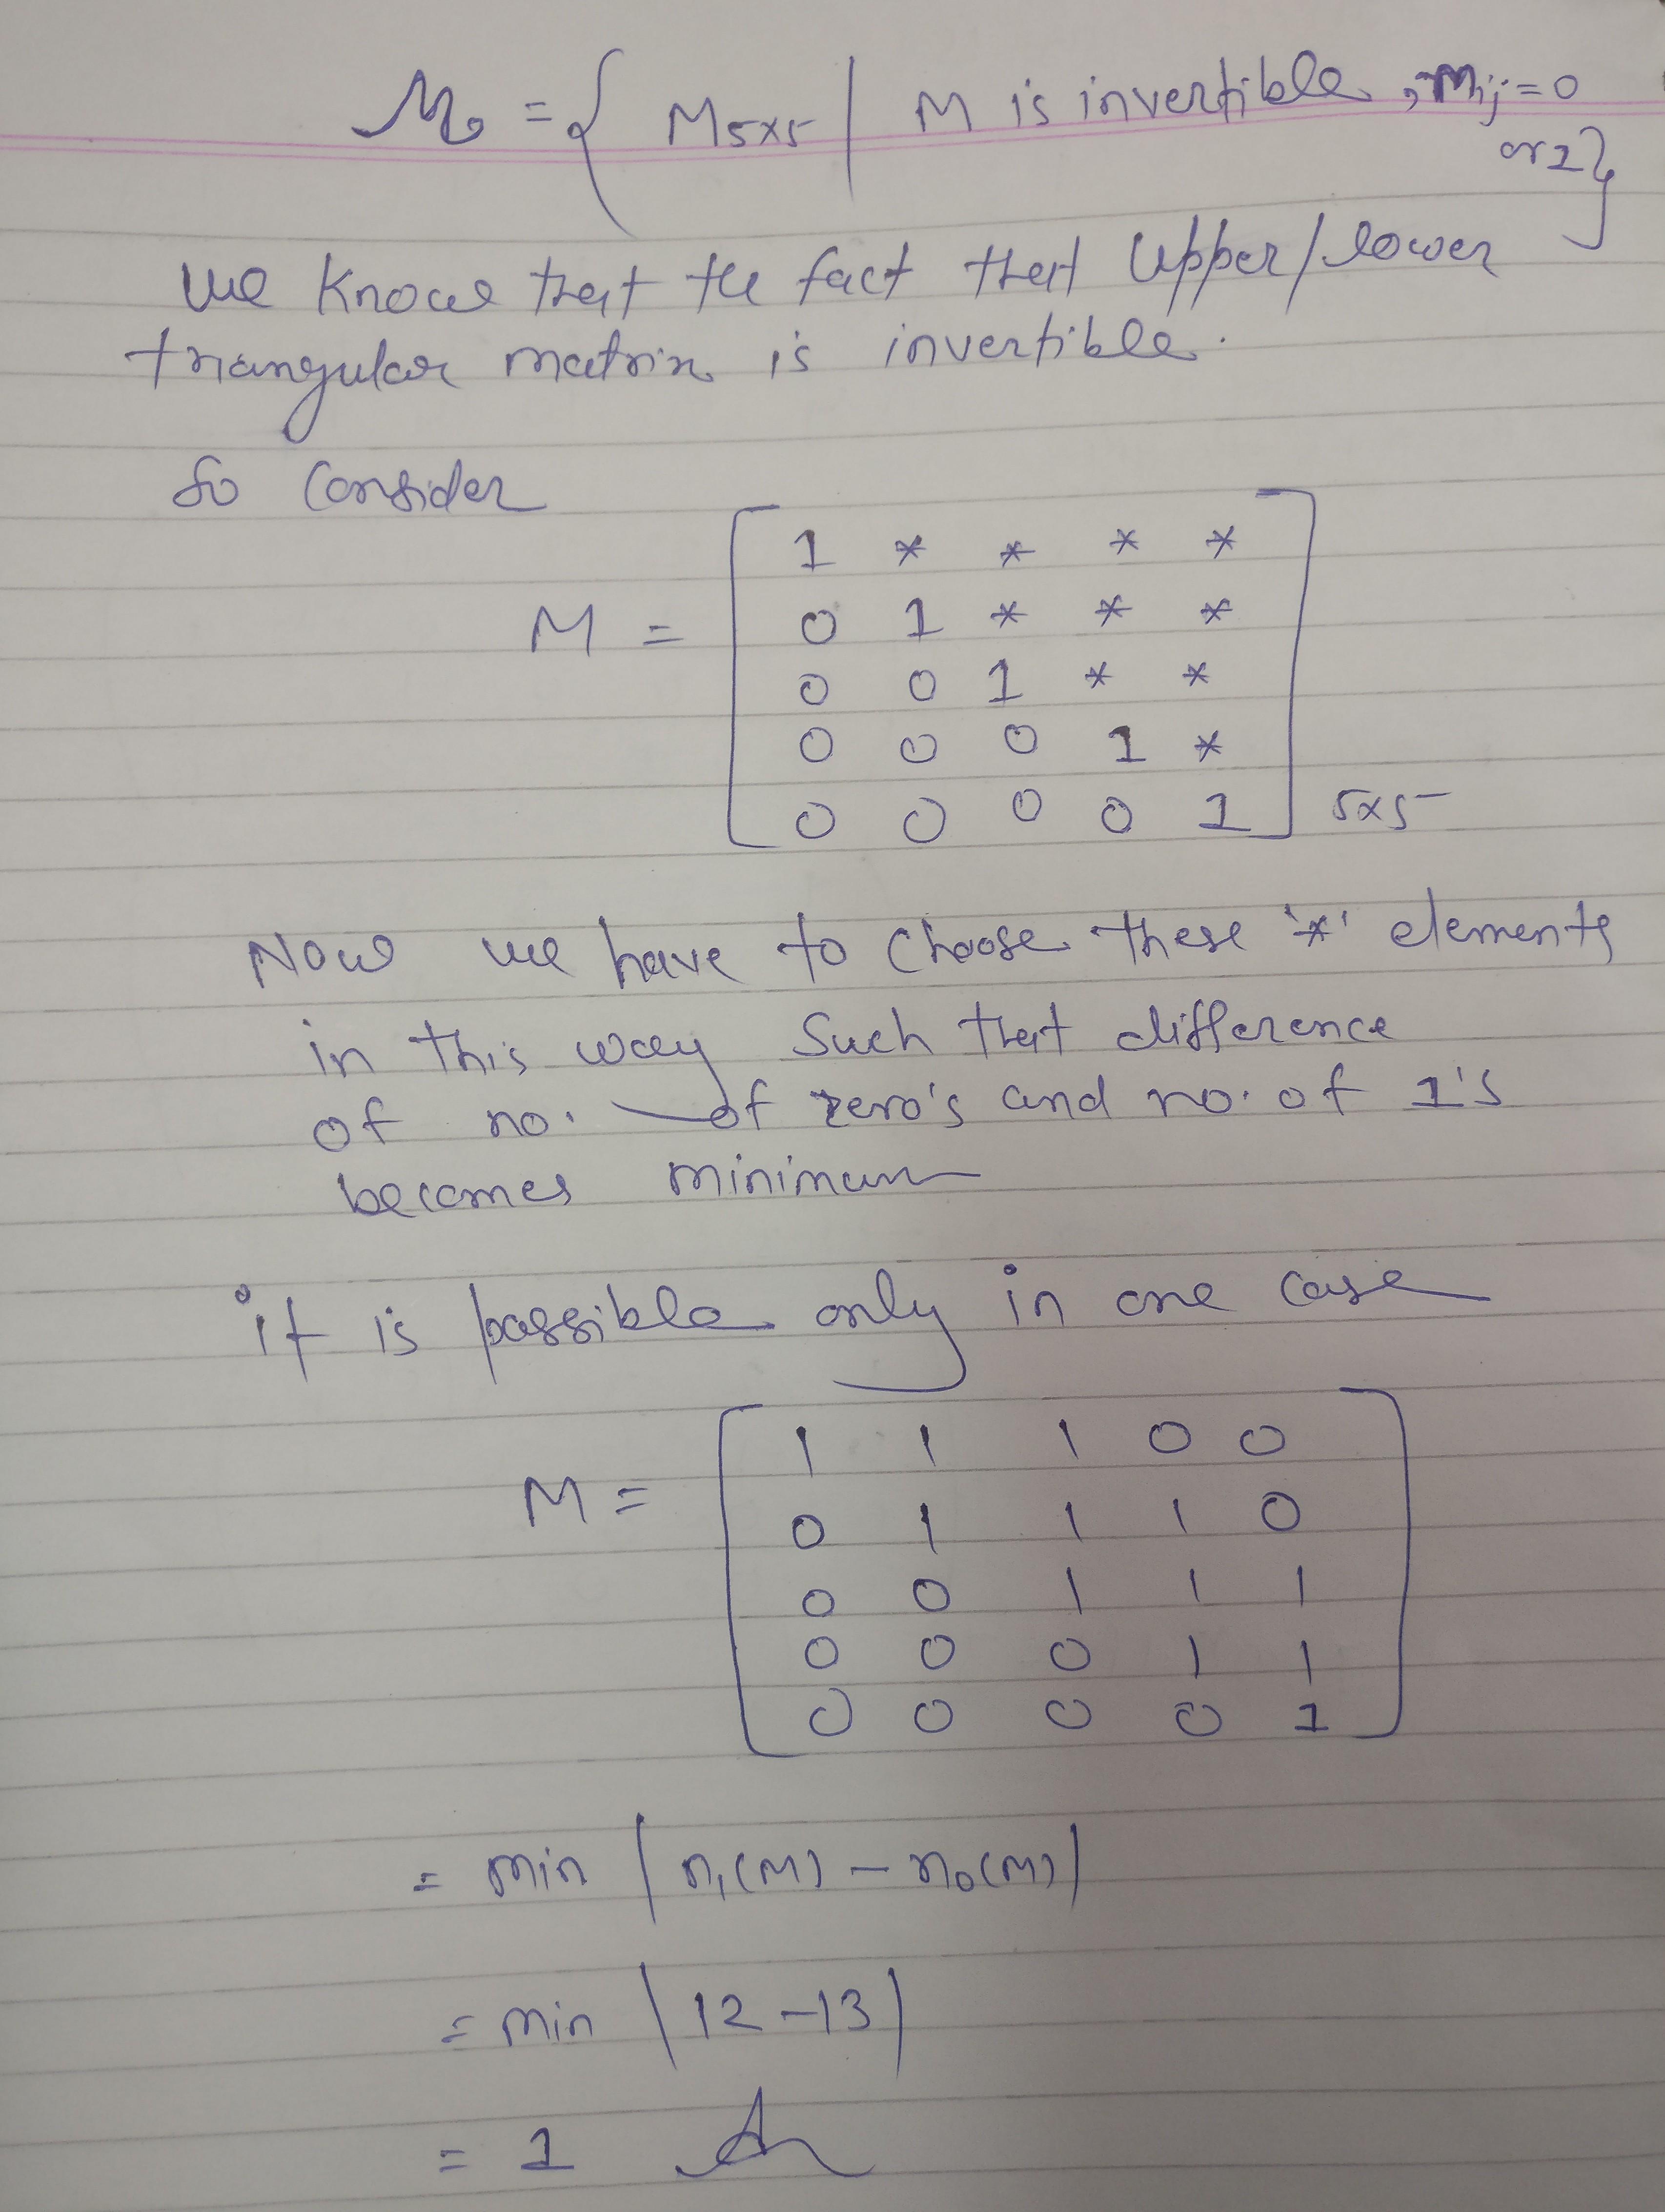 M = { M5x5 | M is invertible, mij = 0
or 1}
we know that the fact that Upper/lower
triangular matrix is invertible.
So Consider
M = [ 1 * * * *
0 1 * * *
0 0 1 * *
0 0 0 1 *
0 0 0 0 1 ] 5x5
Now we have to choose these '*' elements
in this way such that difference
of no. of zero's and no. of 1's
becomes minimum
it is possible only in one case
M = [ 1 1 1 0 0
0 1 1 1 0
0 0 1 1 1
0 0 0 1 1
0 0 0 0 1 ]
= min | n1(M) - n0(M) |
= min | 12 - 13 |
= 1